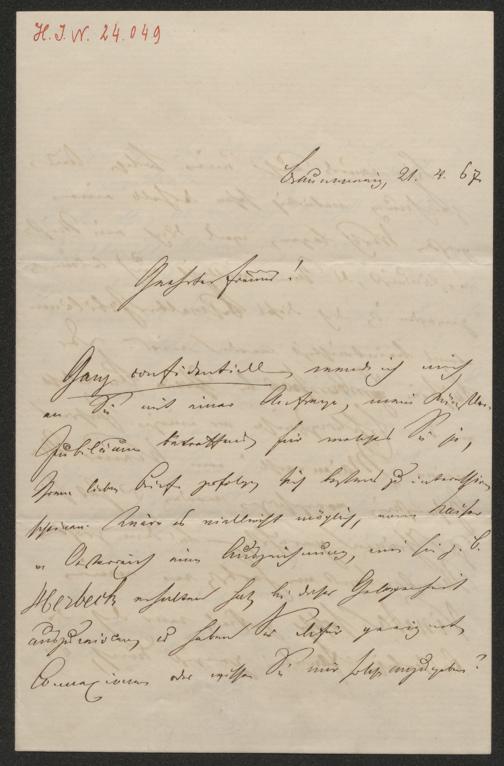 H. I. N. 24.049
Braunschweig, 21. 4. 67
Geehrter Freund!
Ganz confidentiell, wende ich mich
an Sie mit einer Anfrage, mein Künstler-
Jubiläum betreffend, für welches Sie ja,
Ihrem lieben Briefe zufolge, sich bestens zu interessiren
scheinen. Wäre es vielleicht möglich, vom Kaiser
v. Oesterreich eine Auszeichnung, wie sie z. B.
Herbeck erhalten hat, bei dieser Gelegenheit
auszuwirken, u. haben Sie dafür geeignete
Connexionen oder wissen Sie mir solche anzugeben?